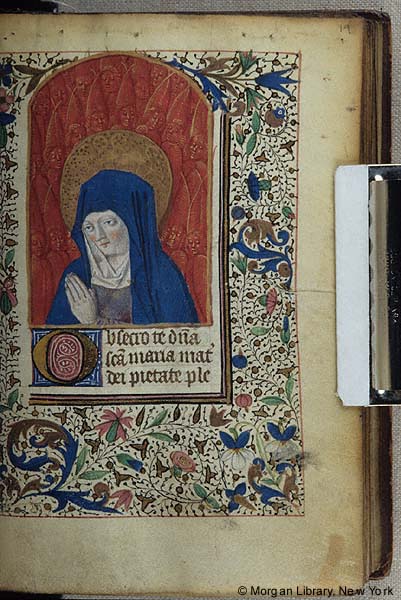 Obsecro te dña
sc̃a maria mat
dei pietate ple
© Morgan Library, New York